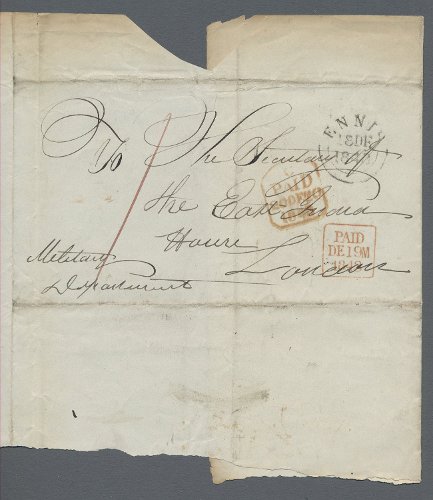 To The Secretary of
the East India
House
London
Military
Department
ENNIS
18 DE
PAID
20 DE
PAID
DE 19 M